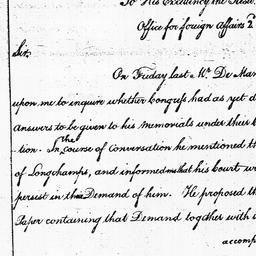 To His Excellency the Presid
Office for foreign Affairs 2
Sir,
On Friday last Mr. De Mar
upon me to inquire whether Congress had as yet d
answers to be given to his memorials under their
tion. In the course of Conversation he mentioned th
of Longchamps, and informed me that his court w
persist in the Demand of him. He proposed th
Paper containing that Demand together with
accomp